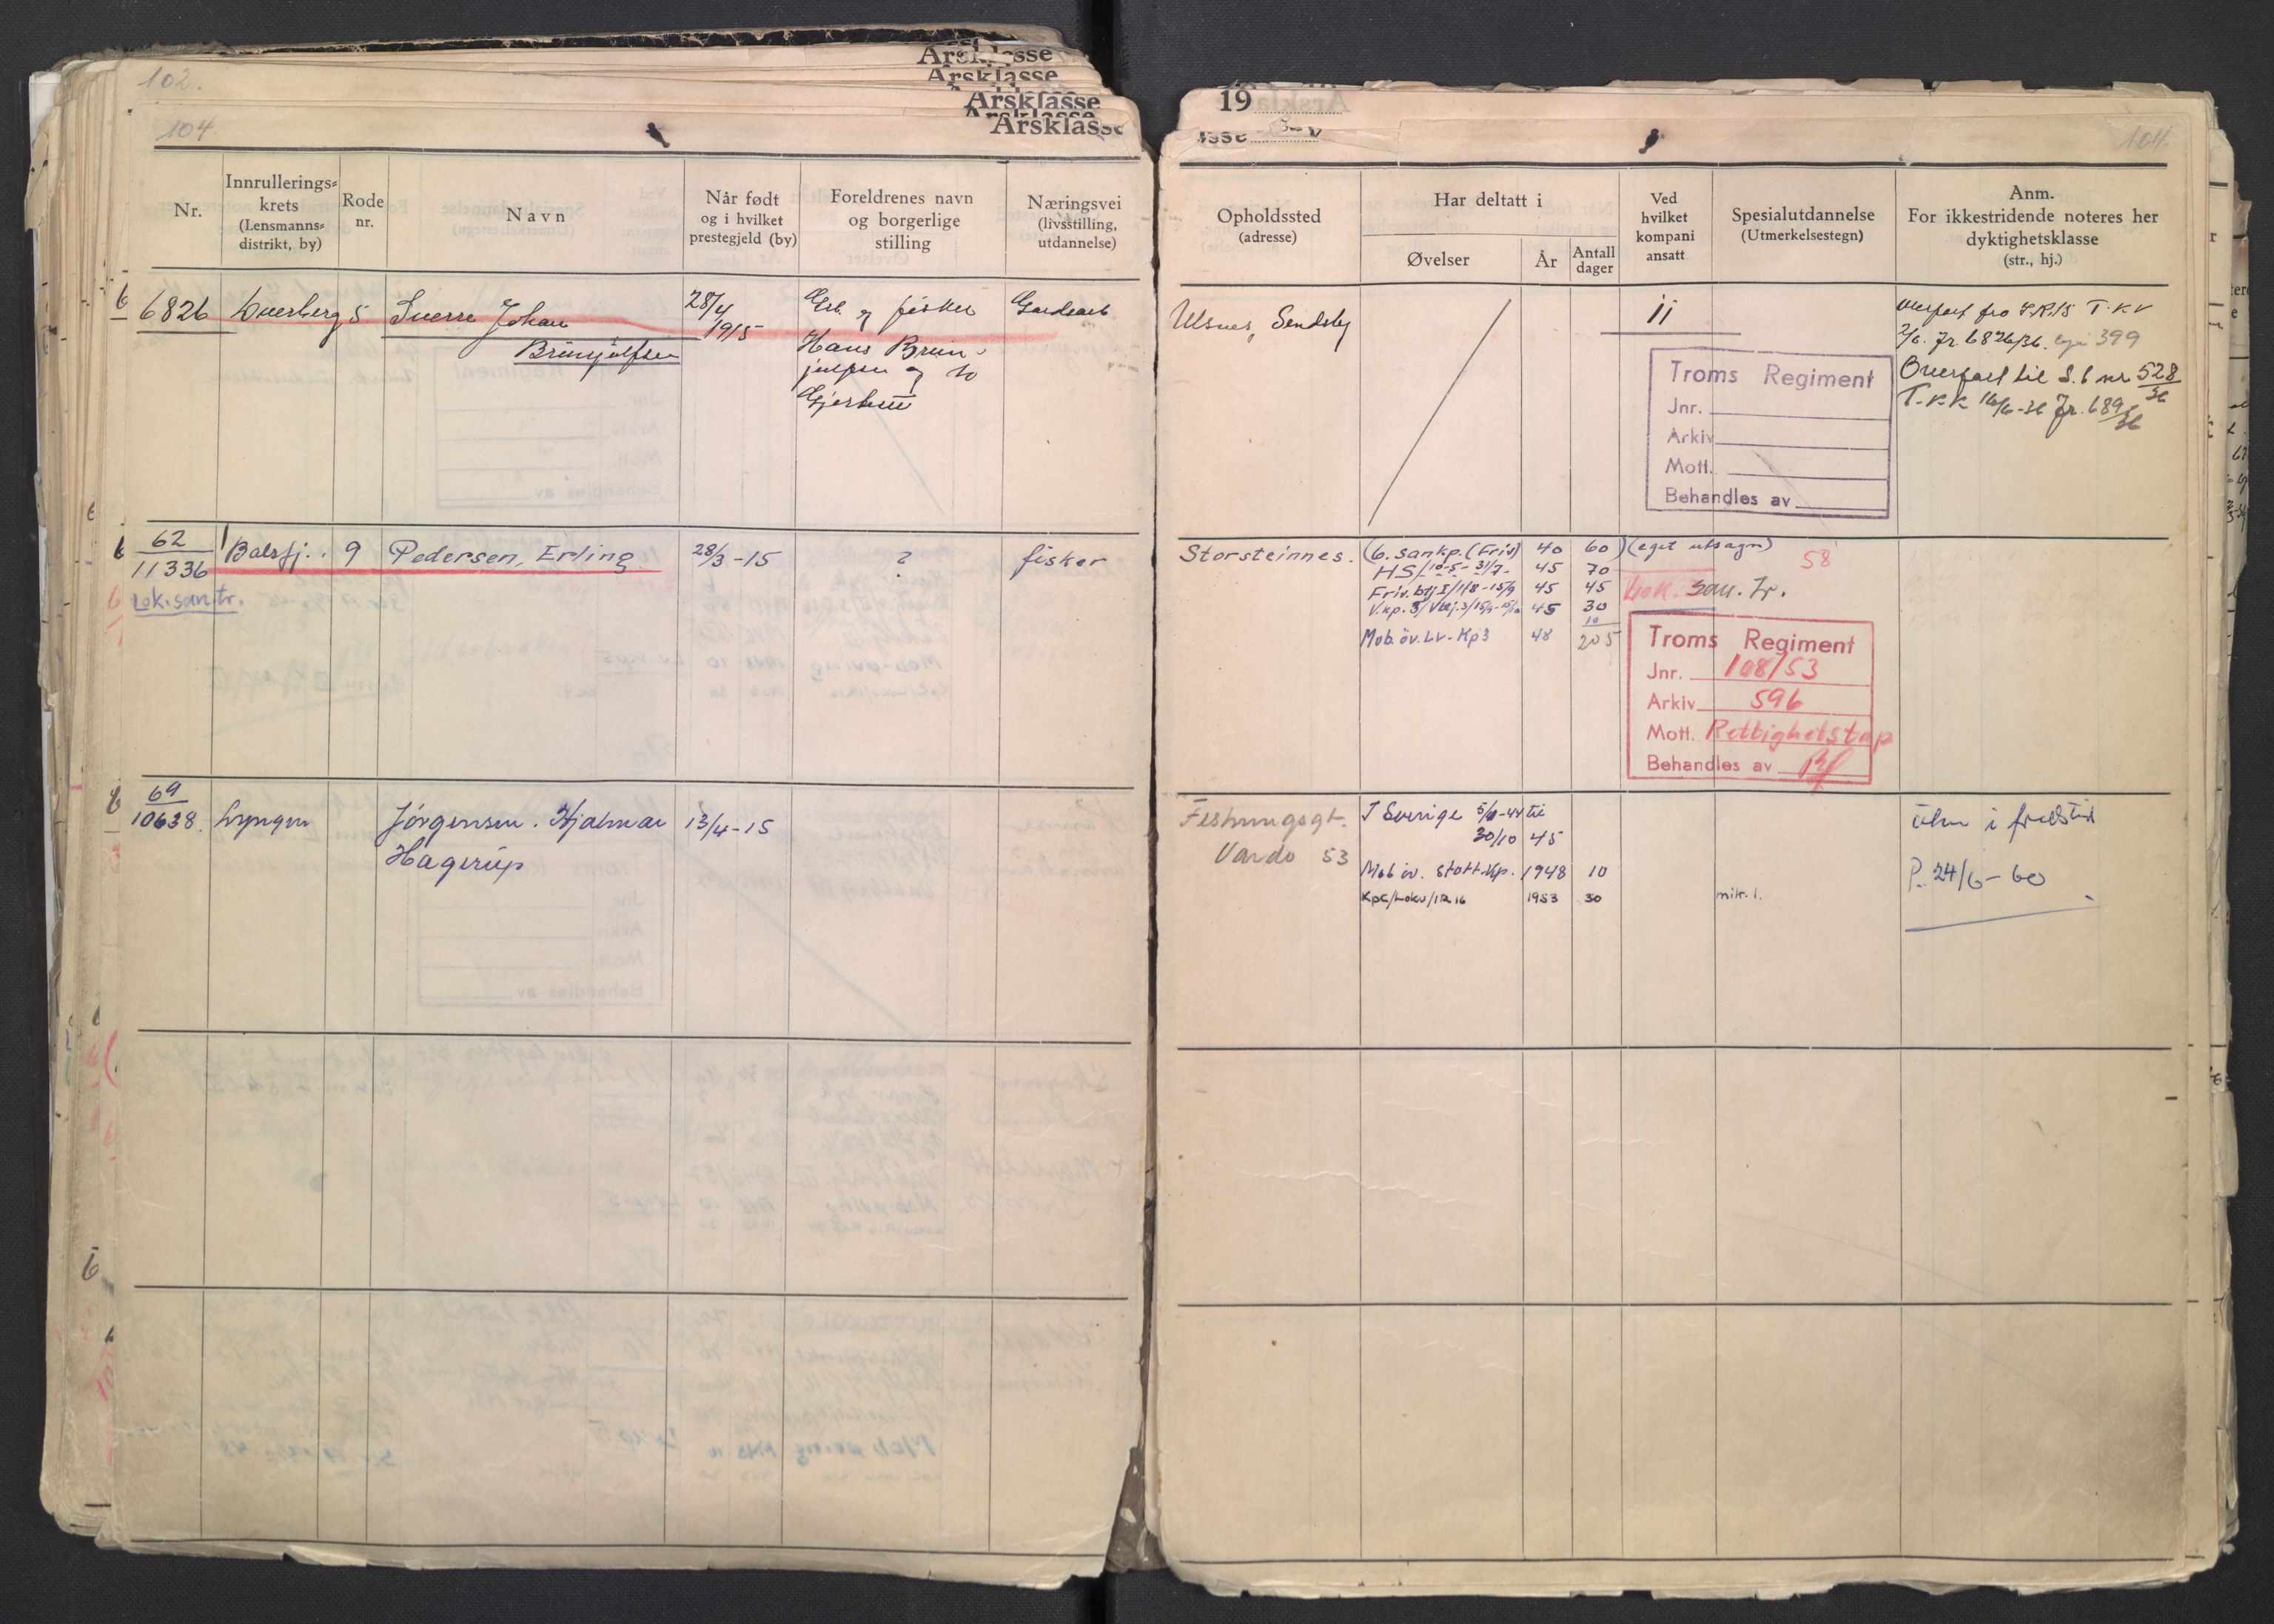 102.
Årsklasse
Årsklasse
Årsklasse
Årsklasse
104
Nr.
Innrullerings-
krets
(Lensmanns-
distrikt, by)
Rode
nr.
Navn
Når født
og i hvilket
prestegjeld (by)
Foreldrenes navn
og borgerlige
stilling
Næringsvei
(livsstilling,
utdannelse)
6
6826
5
Sverre Johan
Brunjulfsen
28/4
1915
og fisker
Hans Brun-
julfsen og
Gårdsarb
6
62
11336
Lok.san.tr.
Balsfj.
9
Pedersen, Erling
28/3-15
?
fisker
6
69
10638.
Lyngen
Jörgensen. Hjalmar
Hagerup
13/4-15
19
104
Opholdssted
(adresse)
Har deltatt i
Øvelser
År
Antall
dager
Ved
hvilket
kompani
ansatt
Spesialutdannelse
(Utmerkelsestegn)
Anm.
For ikkestridende noteres her
dyktighetsklasse
(str., hj.)
11
Overført fra I.R.15 T.K.V
2/6. Jr. 6826/36. 399
Overført til S.6 nr 528/36
T.K.K 16/6-36 Jr. 689/36
Troms Regiment
Jnr.
Arkiv
Mott.
Behandles av
Storsteinnes.
(6. sankp. (Fris) 40 60) (eget utsagn)
58
HS/10-5-31/7- 45 70
Friv. btj I/1/8-15/9 45 45
san. tr.
45 30
10
Mob. öv. Lv-Kp3 48 205
Troms Regiment
Jnr. 108/53
Arkiv 596
Mott. Rettighetstap
Behandles av
Festningsgt.
Vardö 53
I Sverige til
30/10 45
Mob öv. Stött.Kp. 1948 10
KpC/Lokv/IR16 1953 30
mitr. 1.
i fredstid
P. 24/6-60